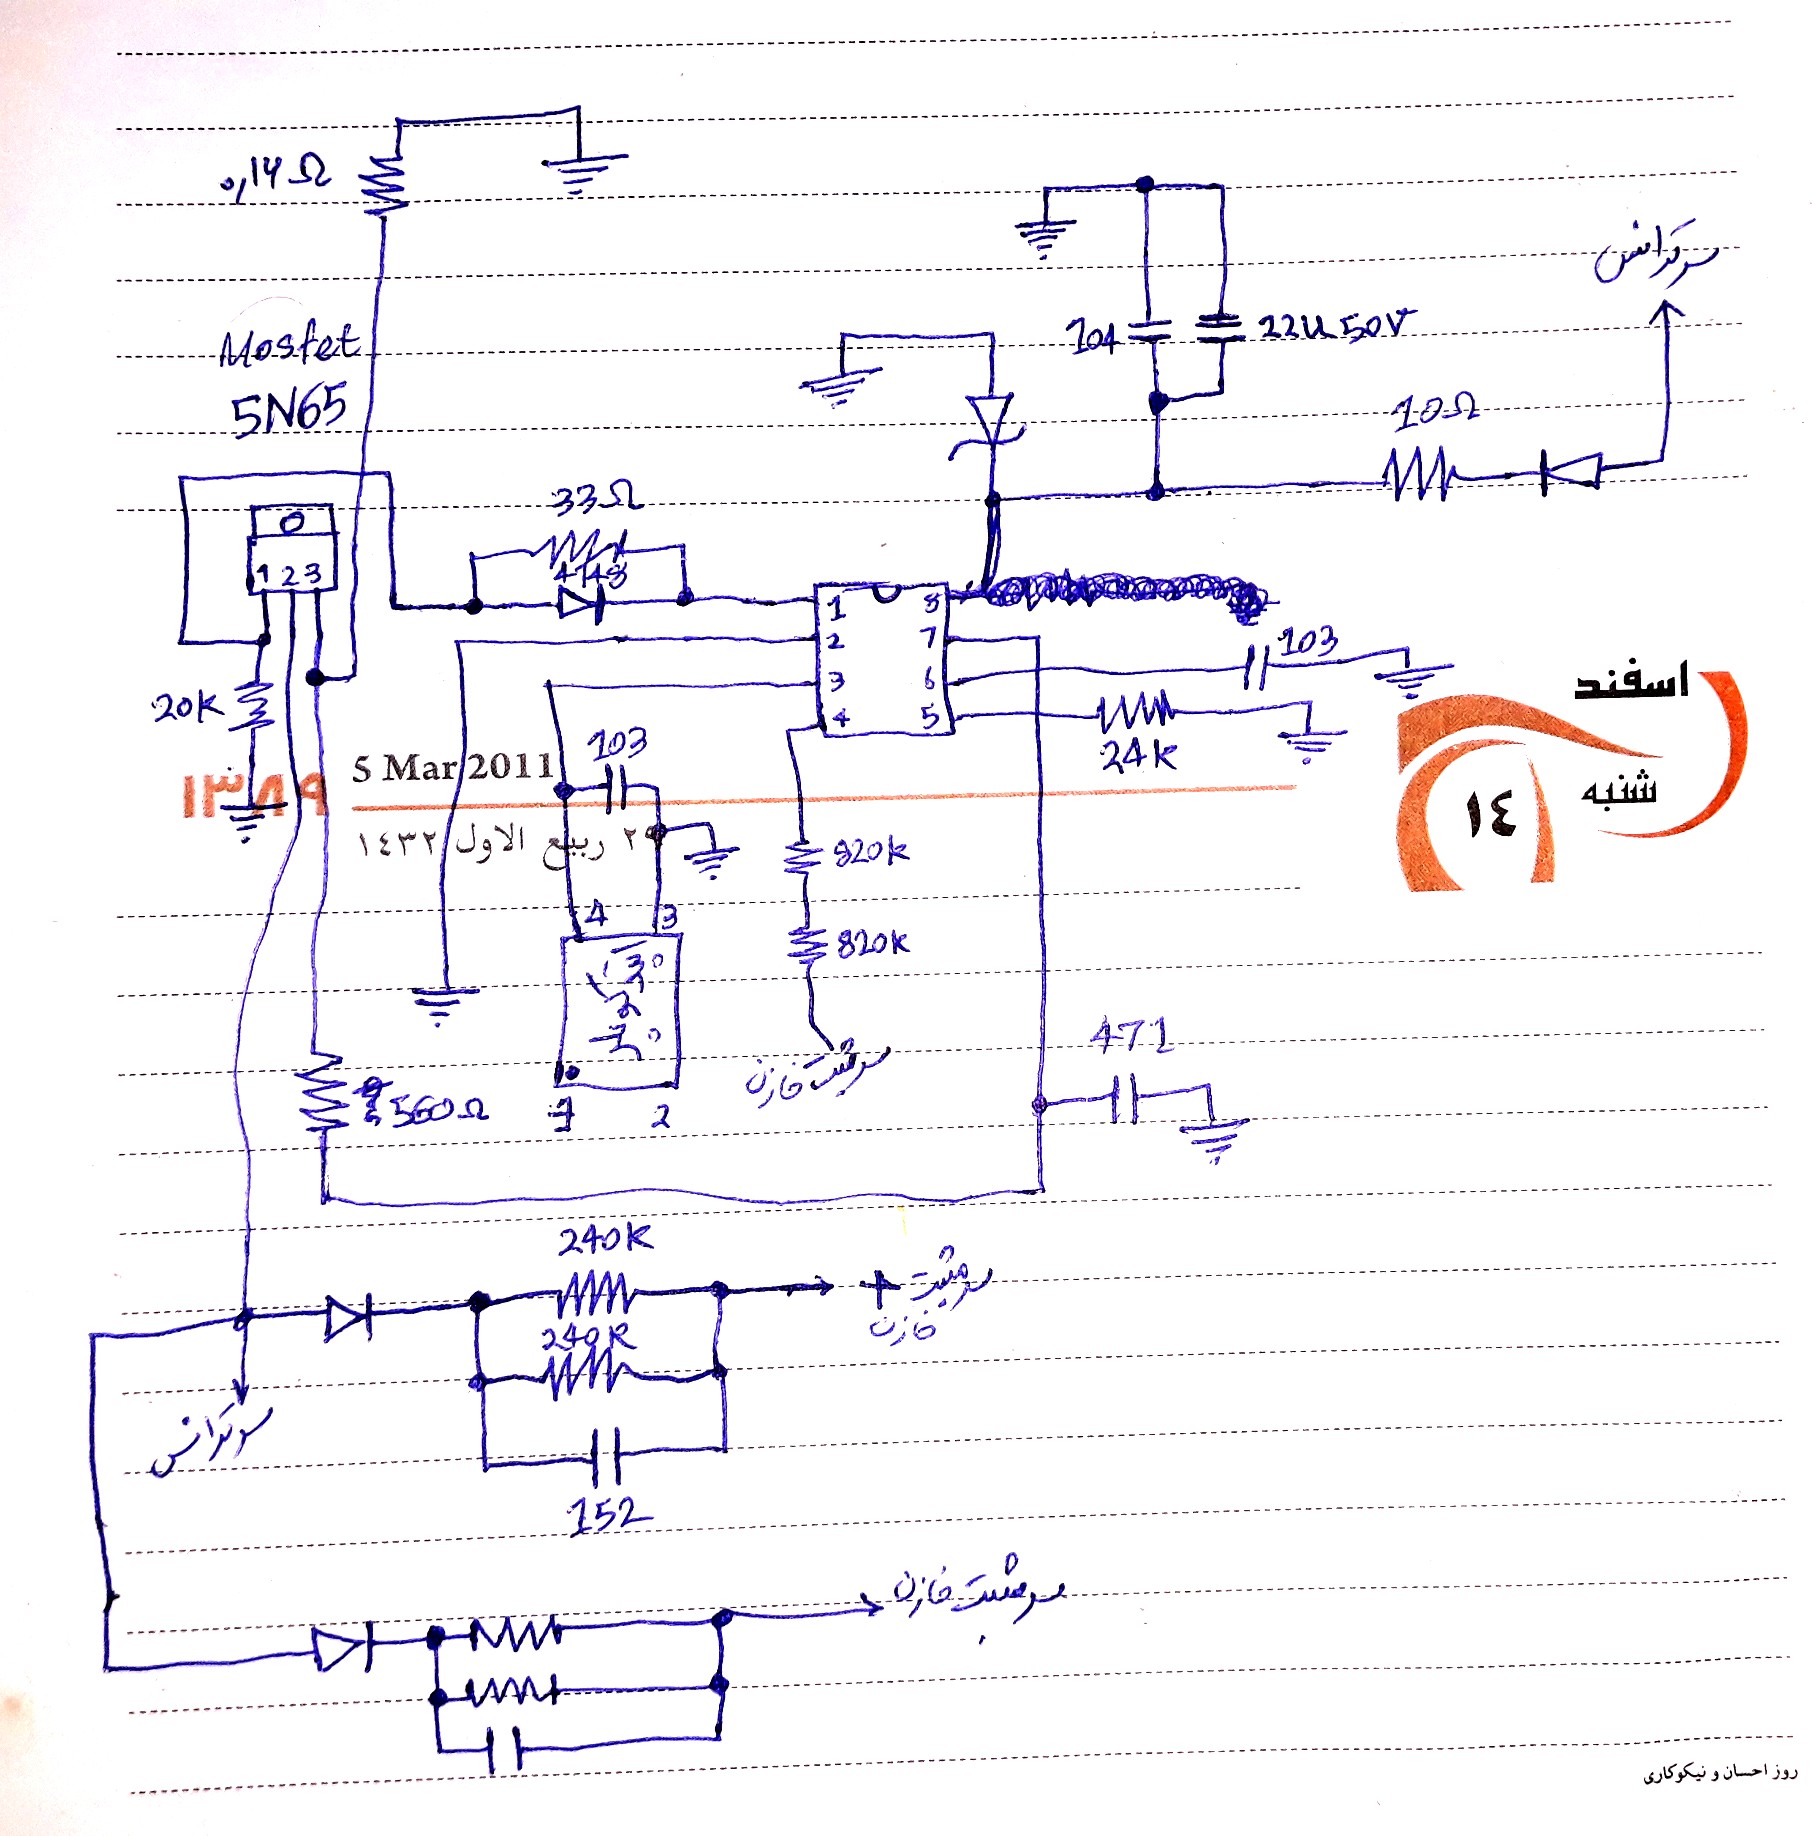 0,14Ω
سر ترانس
104
22u 50V
Mosfet
5N65
10Ω
33Ω
4148
1 2 3
1
2
3
4
8
7
6
5
103
20K
24k
اسفند
شنبه
١٤
١٣٨٩
5 Mar 2011
٢٩ ربيع الاول ١٤٣٢
103
820k
820k
4 3
1 2
سر مثبت خازن
471
560Ω
240k
سر مثبت +
خازن
240k
سر ترانس
152
سر مثبت خازن
روز احسان و نیکوکاری